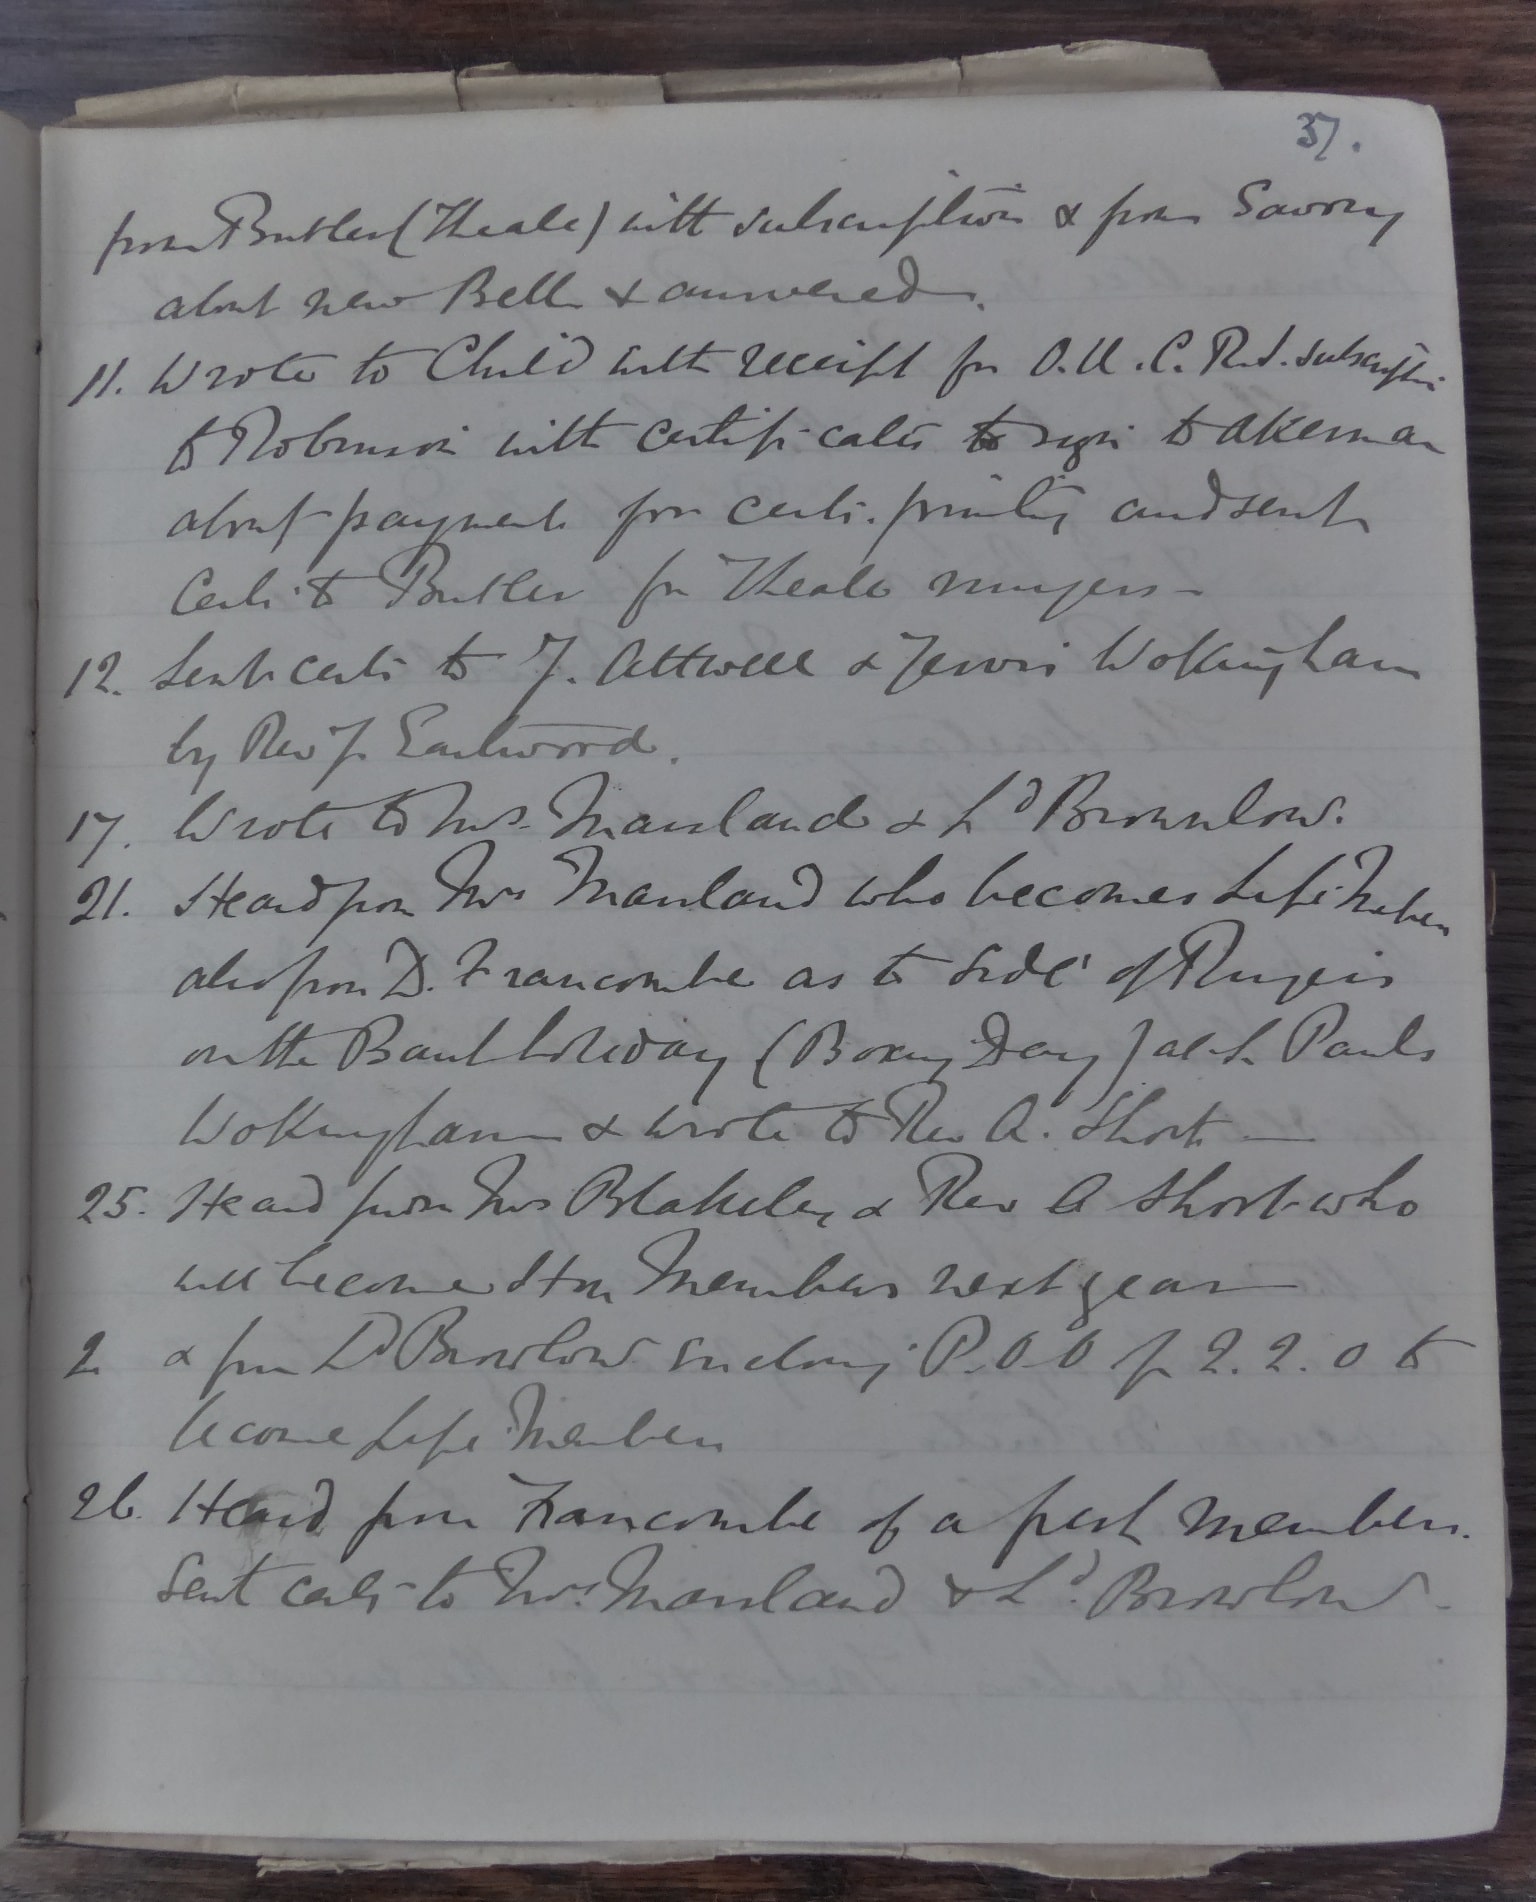 37.
from Butler (Theale) with subscription & from Savory
about new Bell & answered.
11. Wrote to Child with receipt for O.U.C.R.S. subscription
to Robinson with certificates to sign to Akerman
about payment for certi. printing and sent
Certi. to Butler for Theale ringers -
12. Sent certi to J. Attwell & Jervis Wokingham
by Rev J. Eastwood.
17. Wrote to Mrs. Marsland & Ld Brownlow.
21. Heard from Mrs Marsland who becomes Life Member
also from D. Francombe as to side of Ringers
on the Bank holiday (Boxing Day) at St. Pauls
Wokingham & wrote to Rev A. Short —
25. Heard from Mrs Blakeley & Rev A Short who
will become Hon Members next year —
2 & from Ld Brownlow enclosing P.O.O for 2.2.0 to
become Life Member
26. Heard from Francombe of a fresh member.
Sent certi - to Mrs. Marsland & Ld. Brownlow -